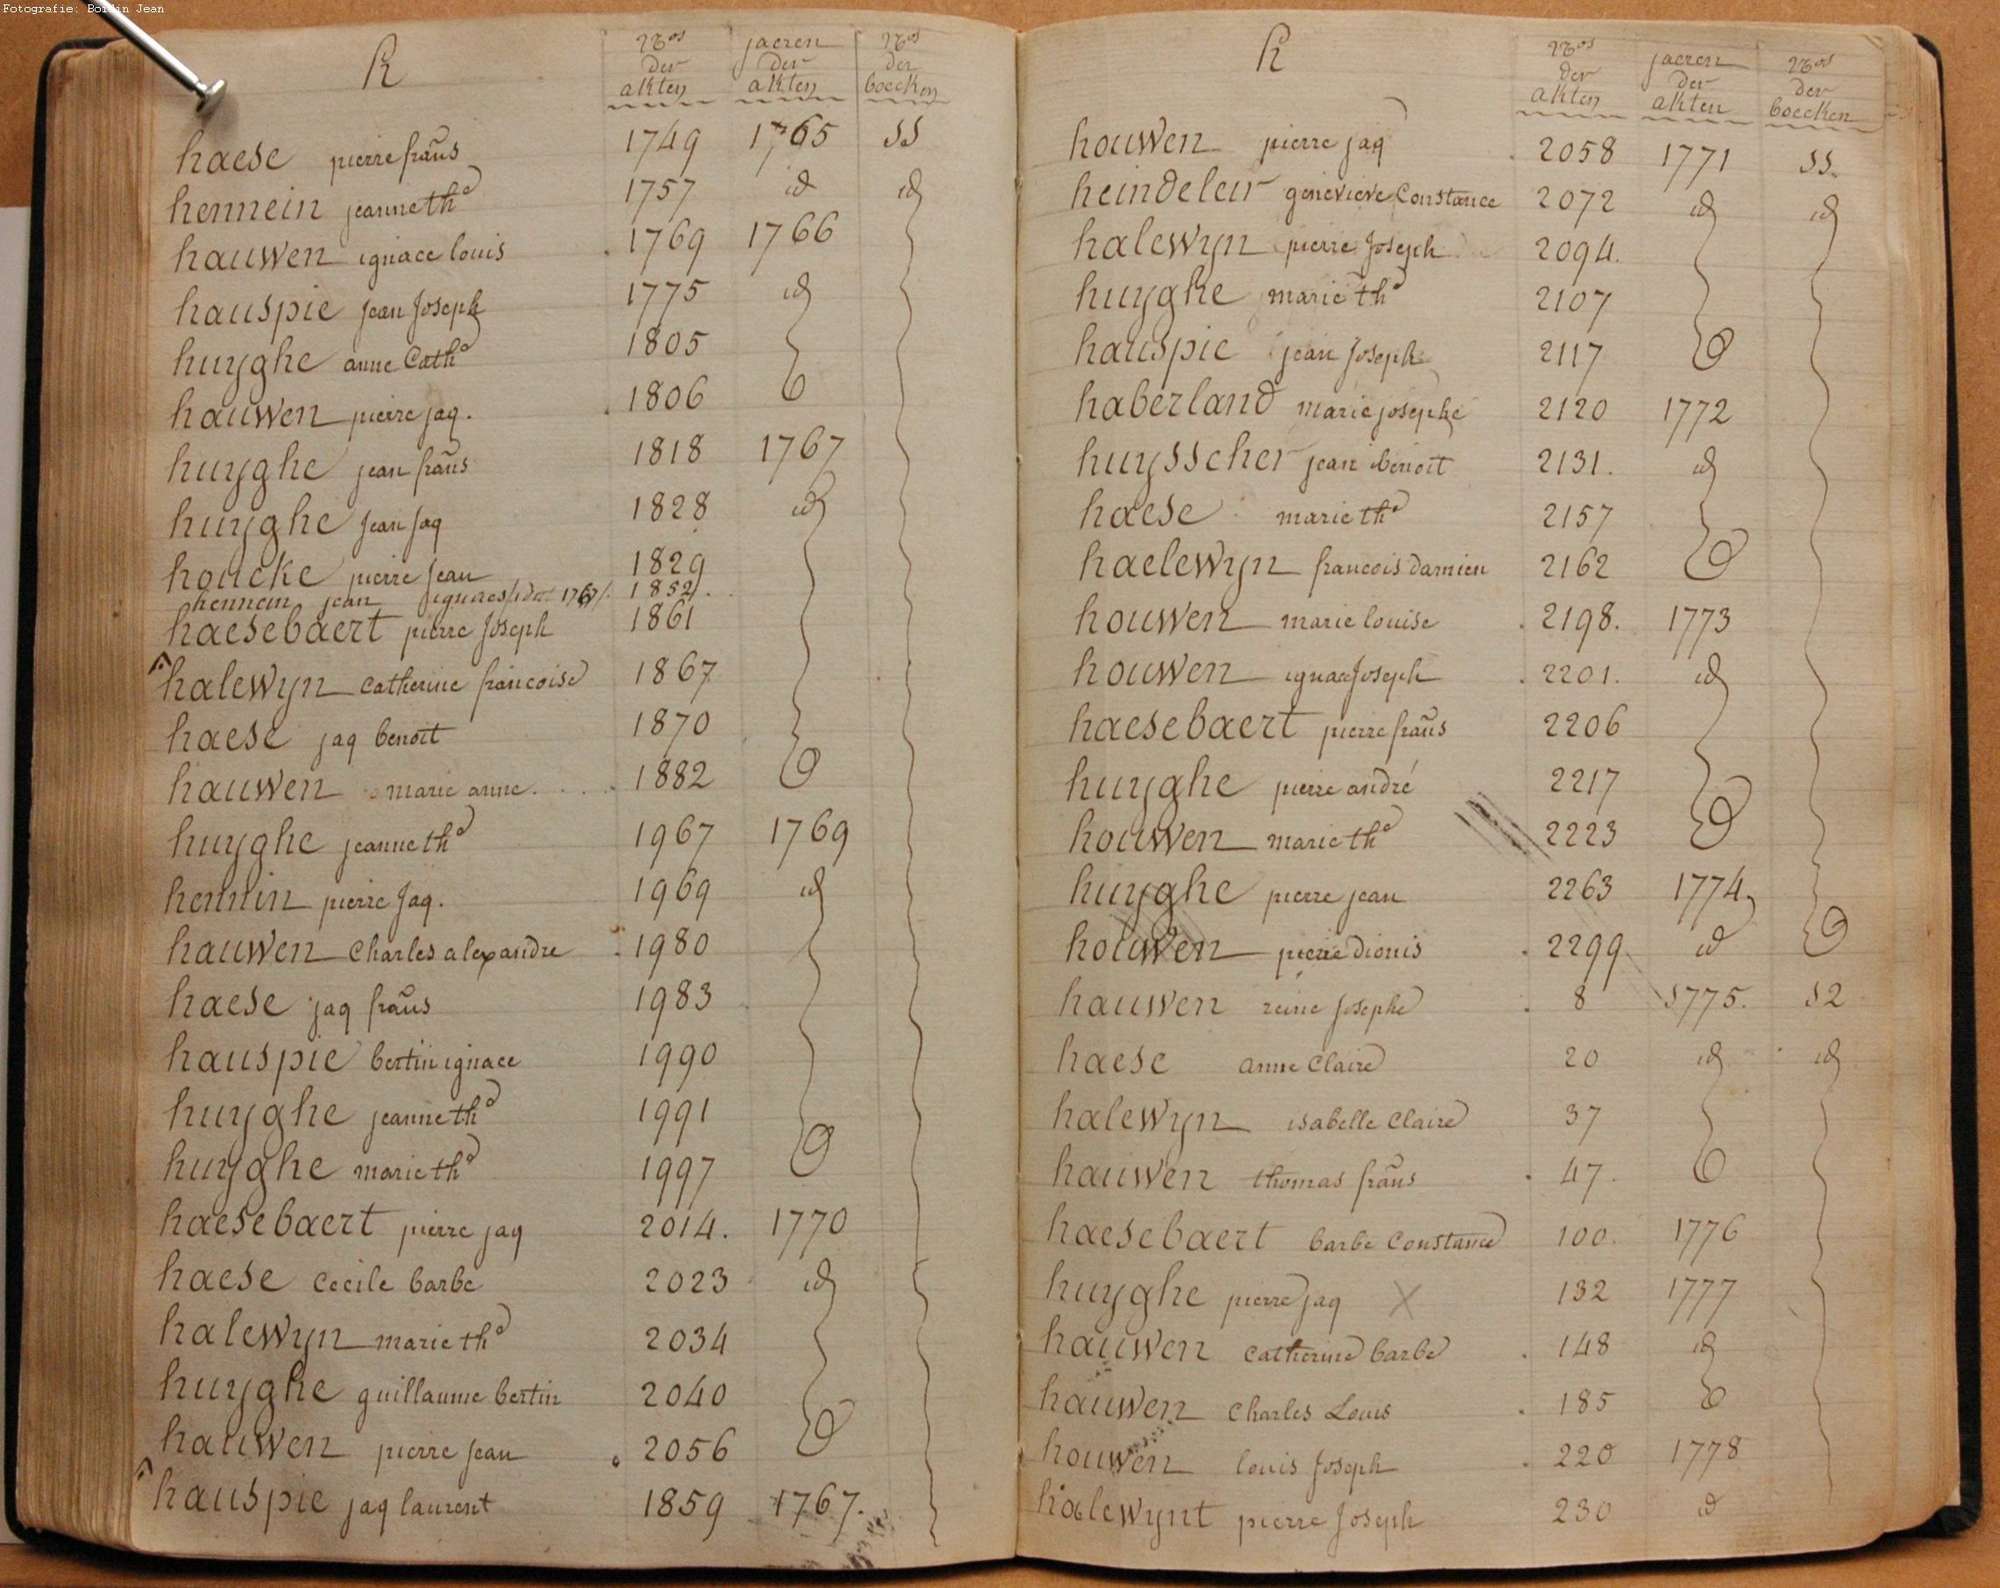 Fotografie: Boidin Jean
h Nos der akten jaeren der akten Nos der boecken
haese pierre frans 1749 1765 SS
hennein jeanne the 1757 id id
hauwen ignace louis 1769 1766
hauspie jean Joseph 1775 id
huyghe anne Cathe 1805
hauwen pierre jaq. 1806
huyghe jean frans 1818 1767
huyghe Jean Jaq 1828 id
houcke pierre Jean 1829
hennein jean ignaes 1767 1852
haesebaert pierre Joseph 1861
halewyn Catherine francoise 1867
haese jaq benoit 1870
hauwen marie anne. 1882
huyghe jeanne the 1967 1769
hennin pierre Jaq. 1969 id
hauwen Charles alexandre 1980
haese jaq frans 1983
hauspie bertin ignace 1990
huyghe jeanne the 1991
huyghe marie the 1997
haesebaert pierre jaq 2014. 1770
haese Cecile barbe 2023 id
halewyn marie the 2034
huyghe guillaume bertin 2040
hauwen pierre Jean 2056
hauspie jaq laurent 1859 1767.
h Nos der akten jaeren der akten Nos der boecken
houwen pierre jaq 2058 1771 SS.
heindeleir genevieve Constance 2072 id id
halewyn pierre Joseph 2094.
huyghe marie the 2107
hauspie jean Joseph 2117
haberland marie josephe 2120 1772
huysscher jean benoit 2131. id
haese marie the 2157
haelewyn francois damien 2162
houwen marie louise 2198. 1773
houwen ignace Joseph 2201. id
haesebaert pierre frans 2206
huyghe pierre andré 2217
houwen marie the 2223
huyghe pierre jean 2263 1774
houwen pierre dionis 2299 id
hauwen reine Josephe 8 1775. 52
haese anne Claire 20 id id
halewyn isabelle Claire 37
hauwen thomas frans 47.
haesebaert barbe Constance 100. 1776
huyghe pierre jaq X 132 1777
hauwen Catherine barbe 148 id
hauwen Charles Louis 185
houwen louis Joseph 220 1778
halewynt pierre Joseph 230 id